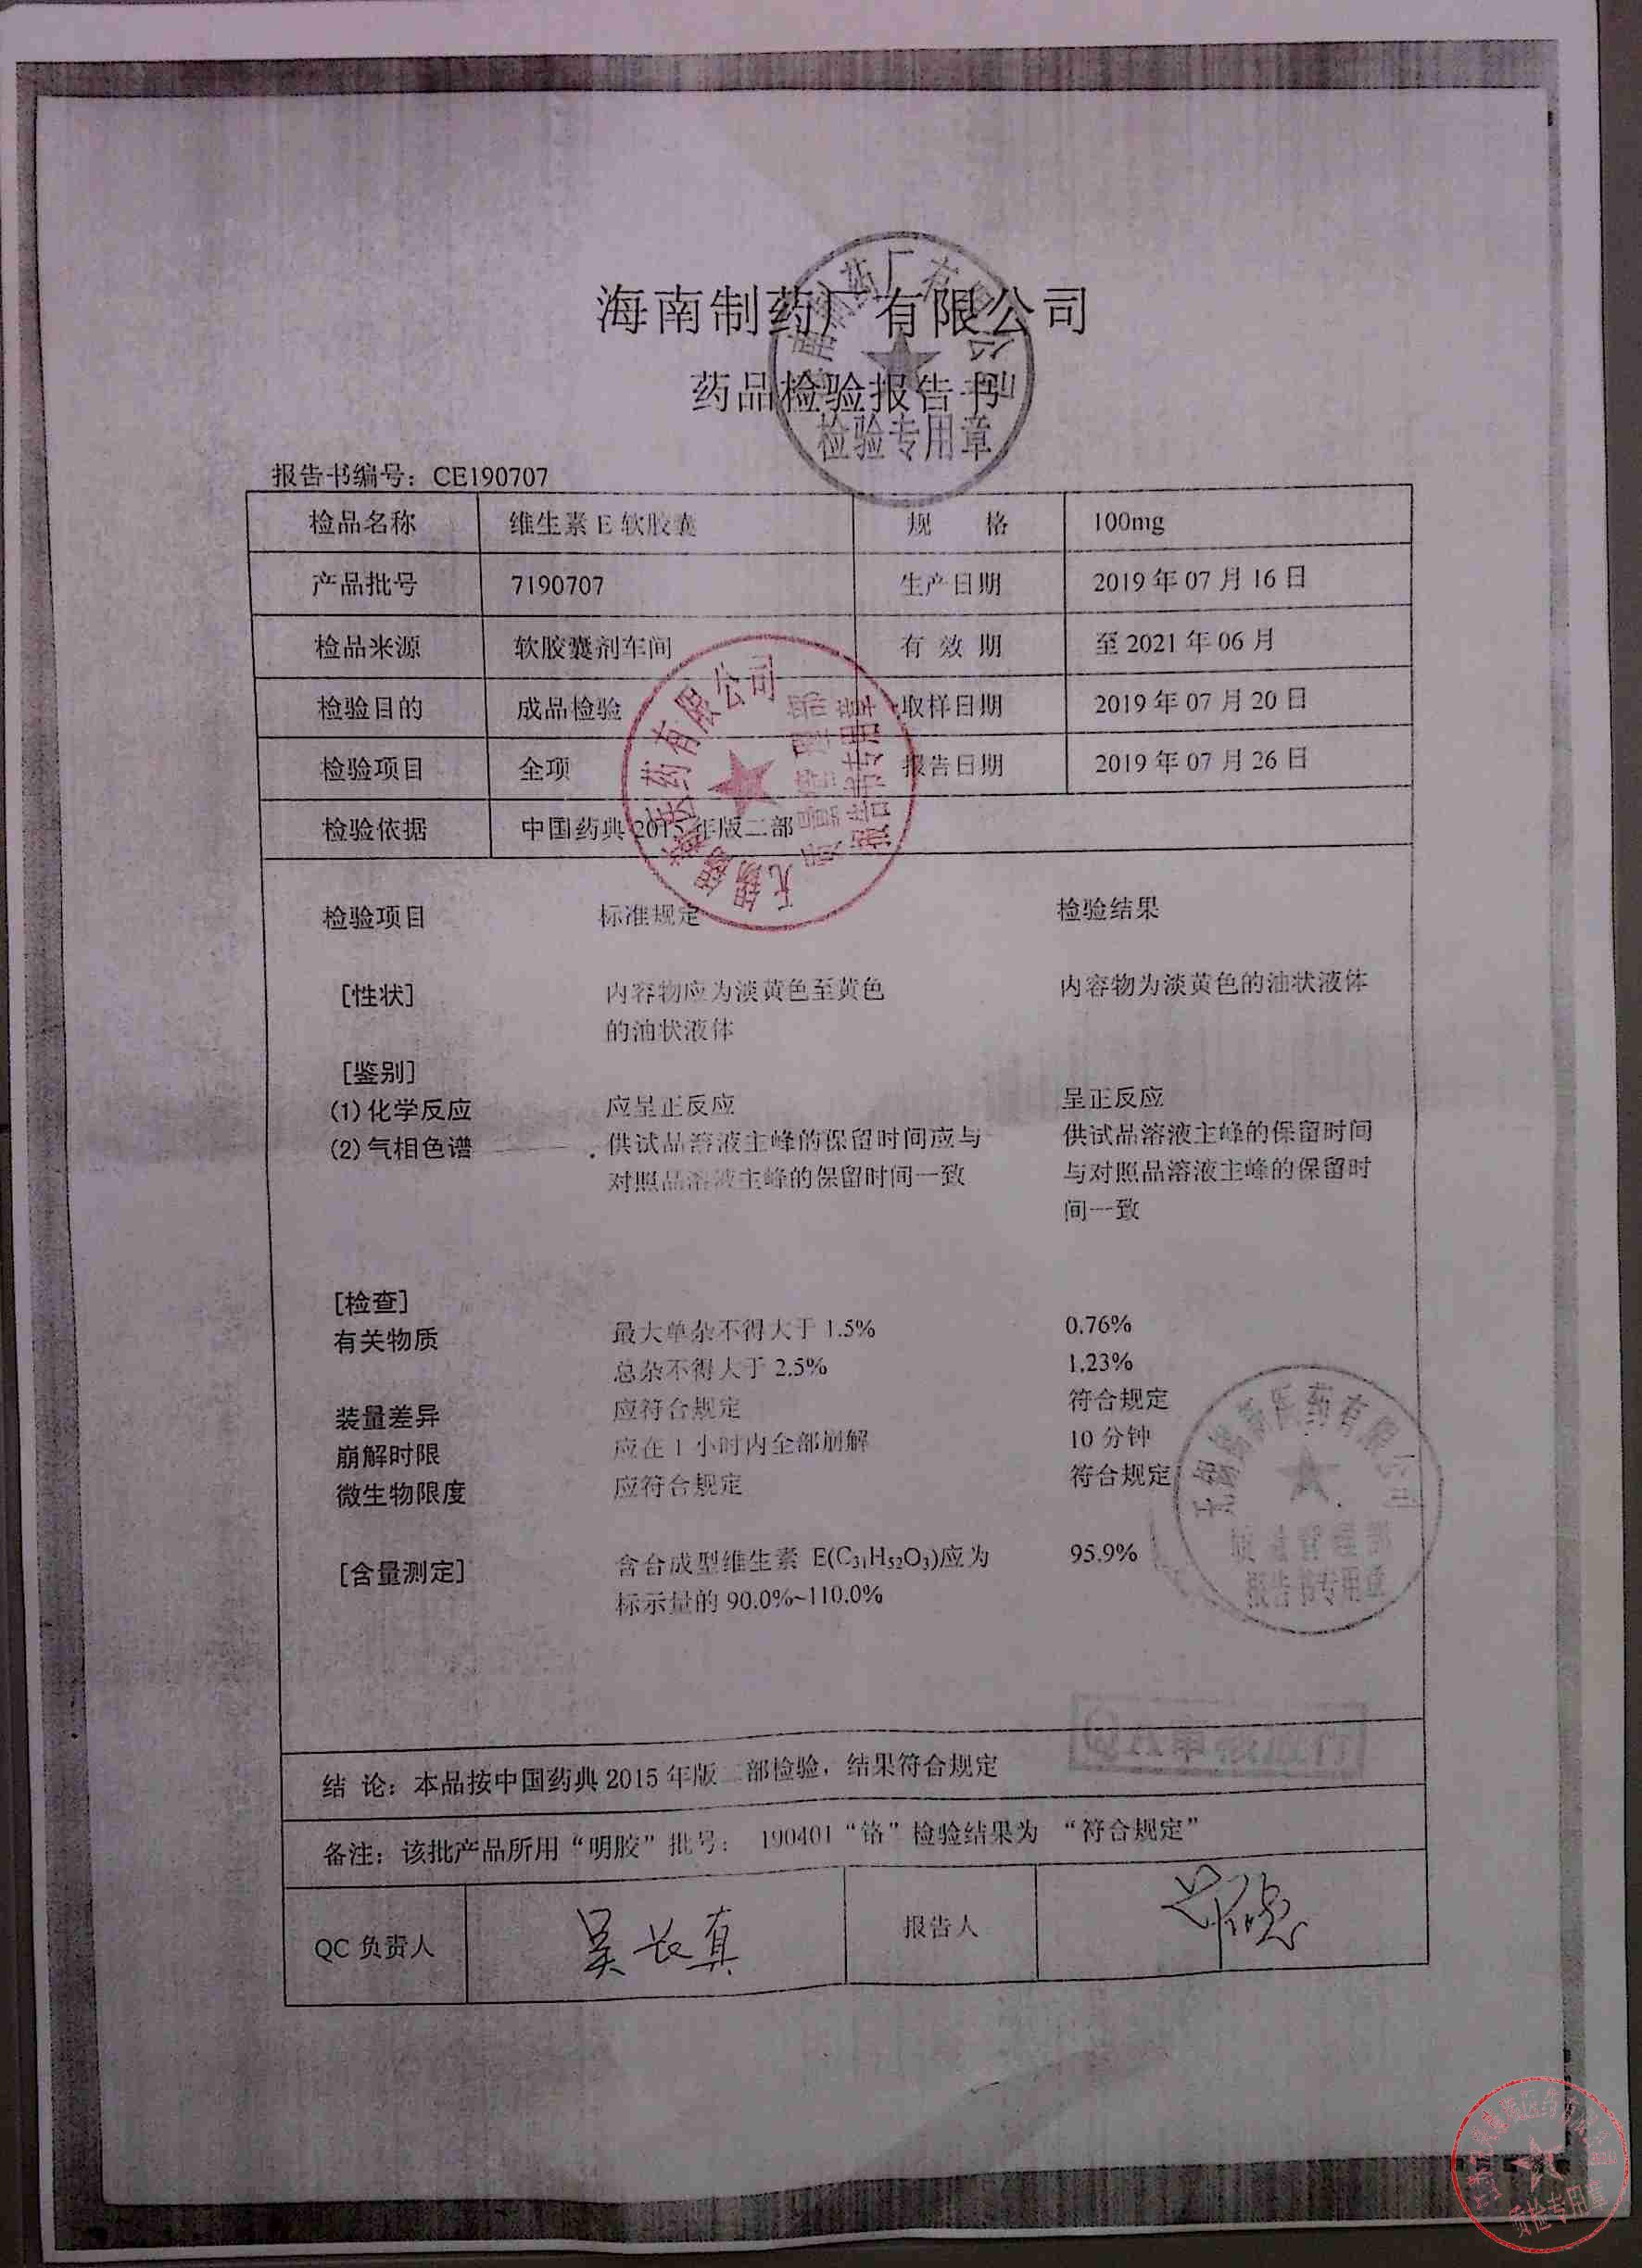 海南制药厂有限公司
药品检验报告书
检验专用章
报告书编号：CE190707
检品名称 维生素 E 软胶囊 规 格 100mg
产品批号 7190707 生产日期 2019 年 07 月 16 日
检品来源 软胶囊剂车间 有 效 期 至 2021 年 06 月
检验目的 成品检验 取样日期 2019 年 07 月 20 日
检验项目 全项 报告日期 2019 年 07 月 26 日
检验依据 中国药典 2015 年版二部
检验项目 标准规定 检验结果
[性状] 内容物应为淡黄色至黄色 内容物为淡黄色的油状液体
的油状液体
[鉴别]
(1) 化学反应 应呈正反应 呈正反应
(2) 气相色谱 供试品溶液主峰的保留时间应与 供试品溶液主峰的保留时间
对照品溶液主峰的保留时间一致 与对照品溶液主峰的保留时
间一致
[检查]
有关物质 最大单杂不得大于 1.5% 0.76%
总杂不得大于 2.5% 1.23%
装量差异 应符合规定 符合规定
崩解时限 应在 1 小时内全部崩解 10 分钟
微生物限度 应符合规定 符合规定
[含量测定] 含合成型维生素 E(C₃₁H₅₂O₃)应为 95.9%
标示量的 90.0%~110.0%
质量管理部
报告书专用章
结 论：本品按中国药典 2015 年版二部检验，结果符合规定
备注：该批产品所用“明胶”批号： 190401“铬”检验结果为 “符合规定”
QC 负责人 吴长真 报告人
质检专用章